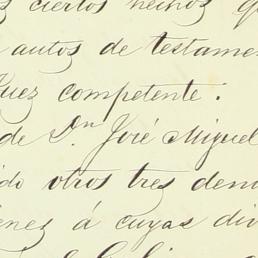 ciertos hechos
autos de testamen
Juez competente:
de Dn José Miguel
ido otros tres dem
enes á cuyas div